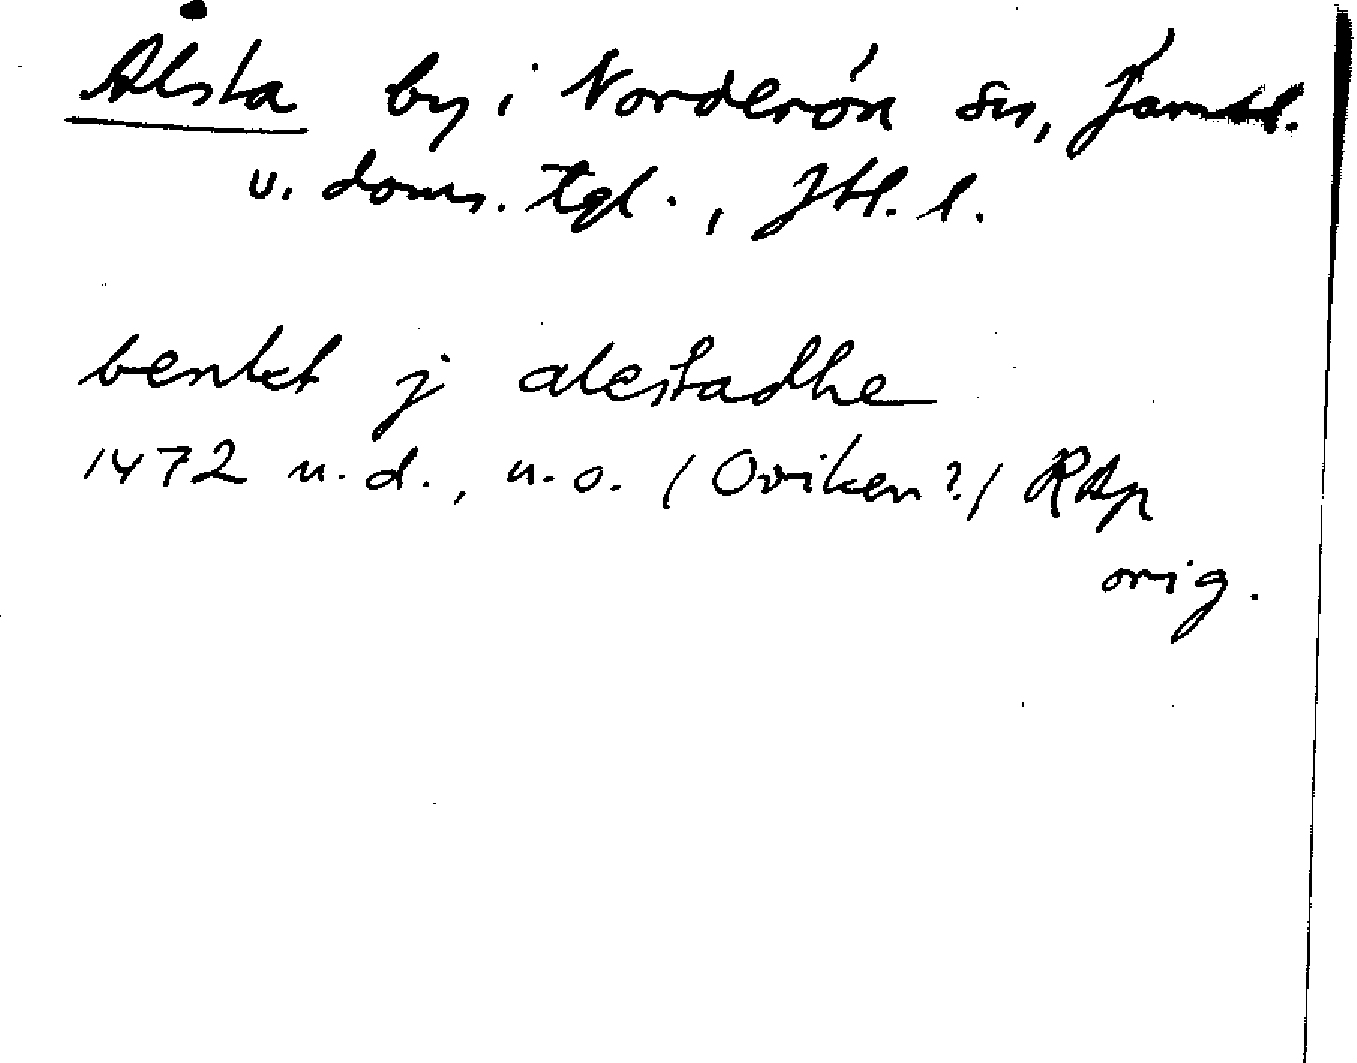 Ålsta by i Norderön sn, Jämtl.
v. doms. tgl., Jtl. l.
benkt j alestadhe
1472 u.d., u.o. (Oviken?) RAp
orig.